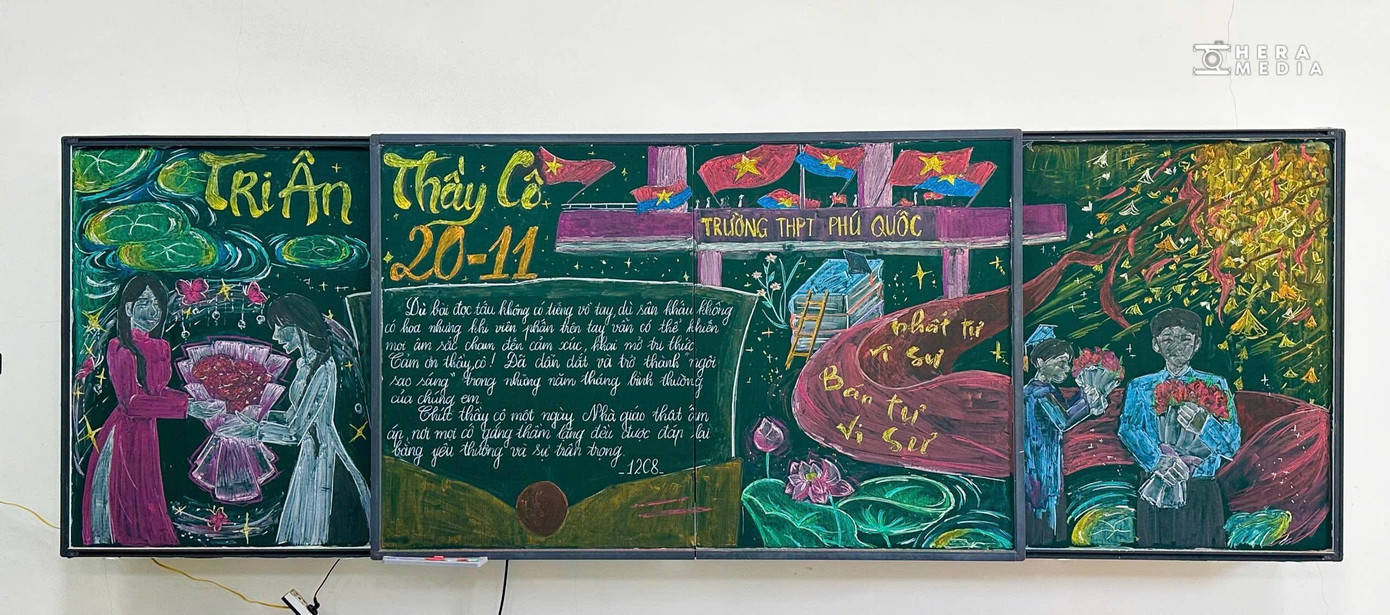 HERA
MEDIA
Tri Ân
Thầy Cô
20-11
TRƯỜNG THPT PHÚ QUỐC
Dù bài độc tấu không có tiếng vỗ tay, dù sân khấu không
có hoa nhưng khi viên phấn trên tay vẫn có thể khiến
mọi âm sắc chạm đến cảm xúc, khai mở tri thức
Cảm ơn thầy, cô! Đã dẫn dắt và trở thành "ngôi
sao sáng" trong những năm tháng bình thường
của chúng em.
Chúc thầy cô một ngày Nhà giáo thật ấm
áp, nơi mọi cố gắng thầm lặng đều được đáp lại
bằng yêu thương và sự trân trọng.
_12C8_
nhất tự
vi sư
Bán tự
vi sư